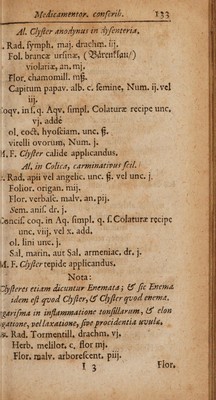 Medicamentor. conscrib. 133
Al. Clyster anodynus in dysenteria,
. Rad. symph. maj. drachm. iij.
Fol. brancæ ursinæ, (Bärenklau/)
violariæ, an. mj.
Flor. chamomill. mß.
Capitum papav. alb. c. semine, Num. ij. vel
iij.
Coqv. in s. q. Aqv. simpl. Colaturæ recipe unc.
vj. adde
ol. coct. hyosciam. unc. ß.
vitelli ovorum, Num. j.
M. F. Clyster calide applicandus.
Al. in Colica, carminativus scil.
. Rad. apii vel angelic. unc. ß. vel unc. j.
Folior. origan. mij.
Flor. verbasc. malv. an. pij.
Sem. anis. dr. j.
Concis. coq. in Aq. simpl. q. s. Colaturæ recipe
unc. viij. vel x. add.
ol. lini unc. j.
Sal. marin. aut Sal. armeniac. dr. j.
M. F. Clyster tepide applicandus.
Nota:
Clysteres etiam dicuntur Enemata; & sic Enema
idem est quod Clyster, & Clyster quod enema.
gargarisma in inflammatione tonsillarum, & elon
gatione, vel laxatione, sive procidentia uvulæ,
. Rad. Tormentill. drachm. vj.
Herb. melilot. c. flor mj.
Flor. malv. arborescent. piij.
I 3 Flor.